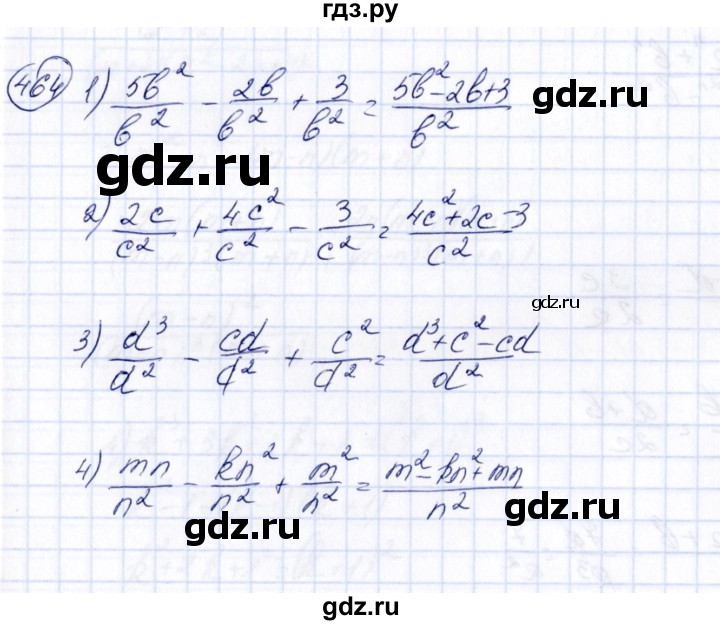 гдз.ру
464 1) 5b²/b² - 2b/b² + 3/b² = 5b²-2b+3/b²
gdz.ru
gdz.ru
2) 2c/c² + 4c²/c² - 3/c² = 4c²+2c-3/c²
gdz.ru
3) d³/d² - cd/d² + c²/d² = d³+c²-cd/d²
4) mn/n² - kn²/n² + m²/n² = m²-kn²+mn/n²
gdz.ru
gdz.ru
gdz.ru